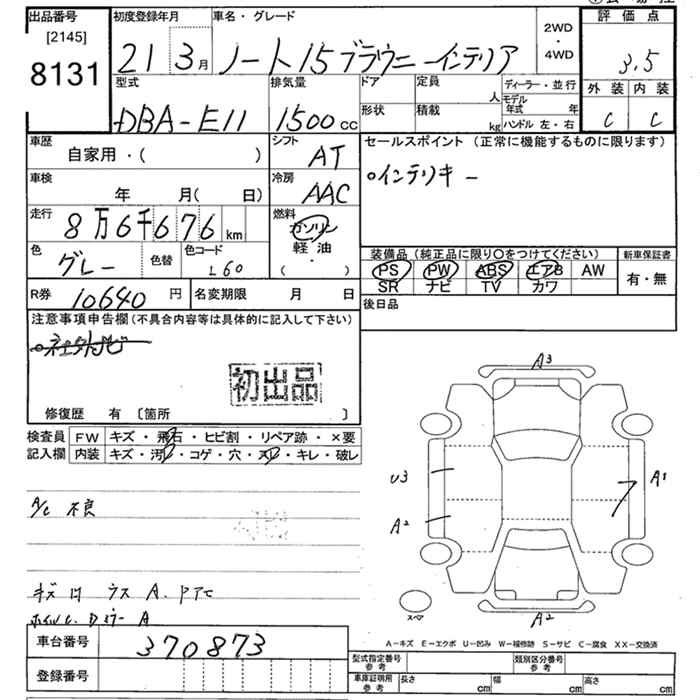 出品番号
[2145]
8131
初度登録年月
21 3月
車名・グレード
ノート 15 ブラウニーインテリア
2WD
・
4WD
評価点
3.5
外装 内装
C C
型式
DBA-E11
排気量
1500cc
ドア
定員
人
形状
積載
kg
ディーラー・並行
モデル
年式 年
ハンドル 左・右
車歴
自家用・( )
シフト
AT
車検
年 月( 日)
冷房
AAC
走行
8万6千676km
燃料
ガソリン
軽油
・
( )
色
グレー
色替
色コード
L60
R券
10640円
名変期限 月 日
セールスポイント (正常に機能するものに限ります)
○インテリキー
装備品 (純正品に限り○をつけてください)
PS PW ABS エアB AW
SR ナビ TV カワ
新車保証書
有・無
後日品
注意事項申告欄(不具合内容等は具体的に記入して下さい)
初出品
修復歴 有 〔箇所 〕
検査員
記入欄
FW キズ・飛石・ヒビ割・リペア跡・×要
内装 キズ・汚レ・コゲ・穴・スレ・キレ・破レ
A/C 不良
A3
U3
A2
A1
A2
スペア
A-キズ E-エクボ U-凹み W-補修跡 S-サビ C-腐食 XX-交換済
車台番号
370873
登録番号
型式指定番号
参考
類別区分番号
参考
車庫証明用
参考
長さ cm
幅 cm
高さ cm